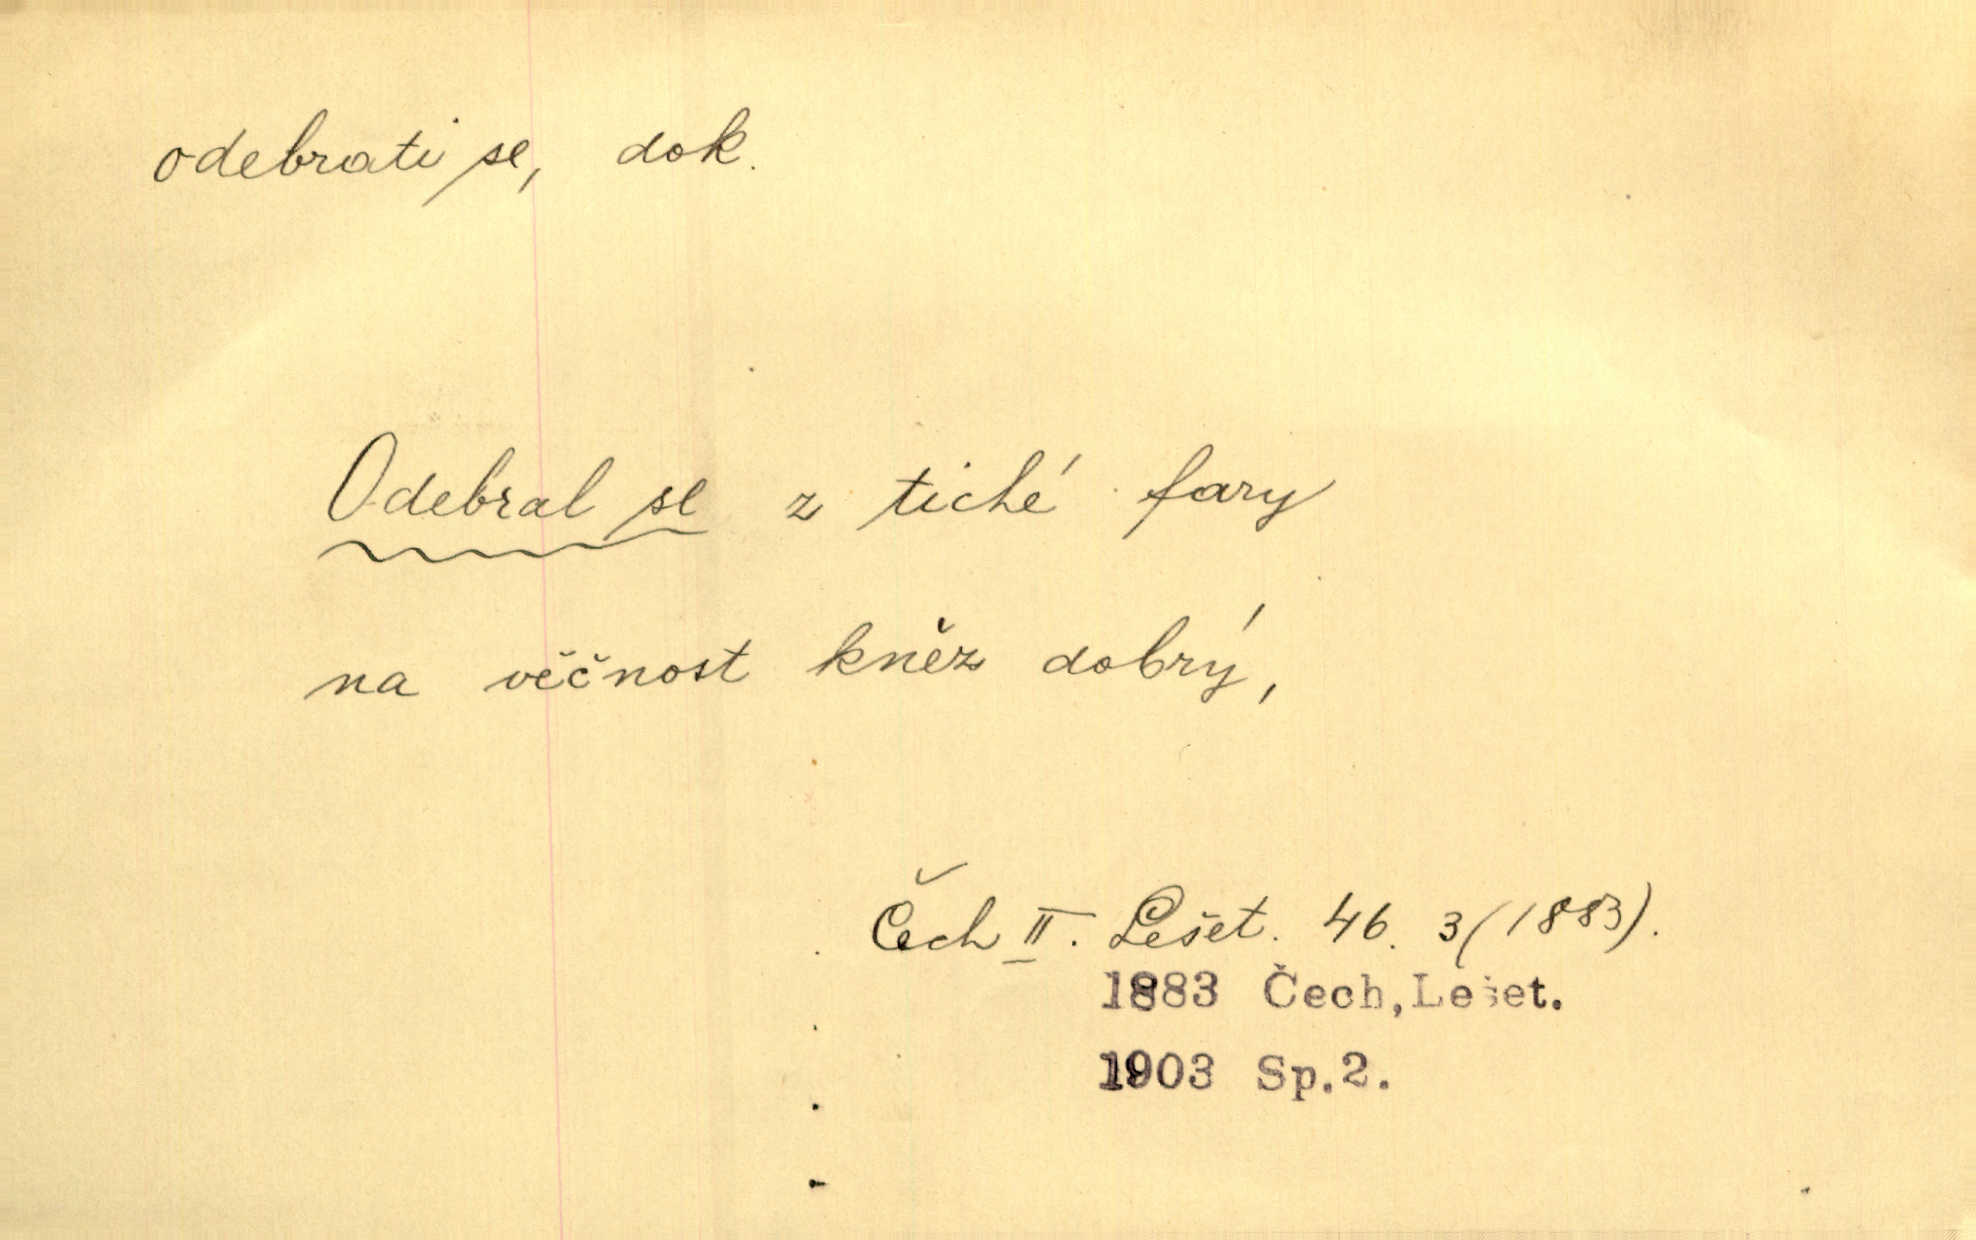 odebrati se, dok.
Odebral se z tiché fary
na věčnost kněz dobrý,
Čech II. Lešet. 46. 3 (1883).
1883 Čech,Lešet.
1903 Sp.2.